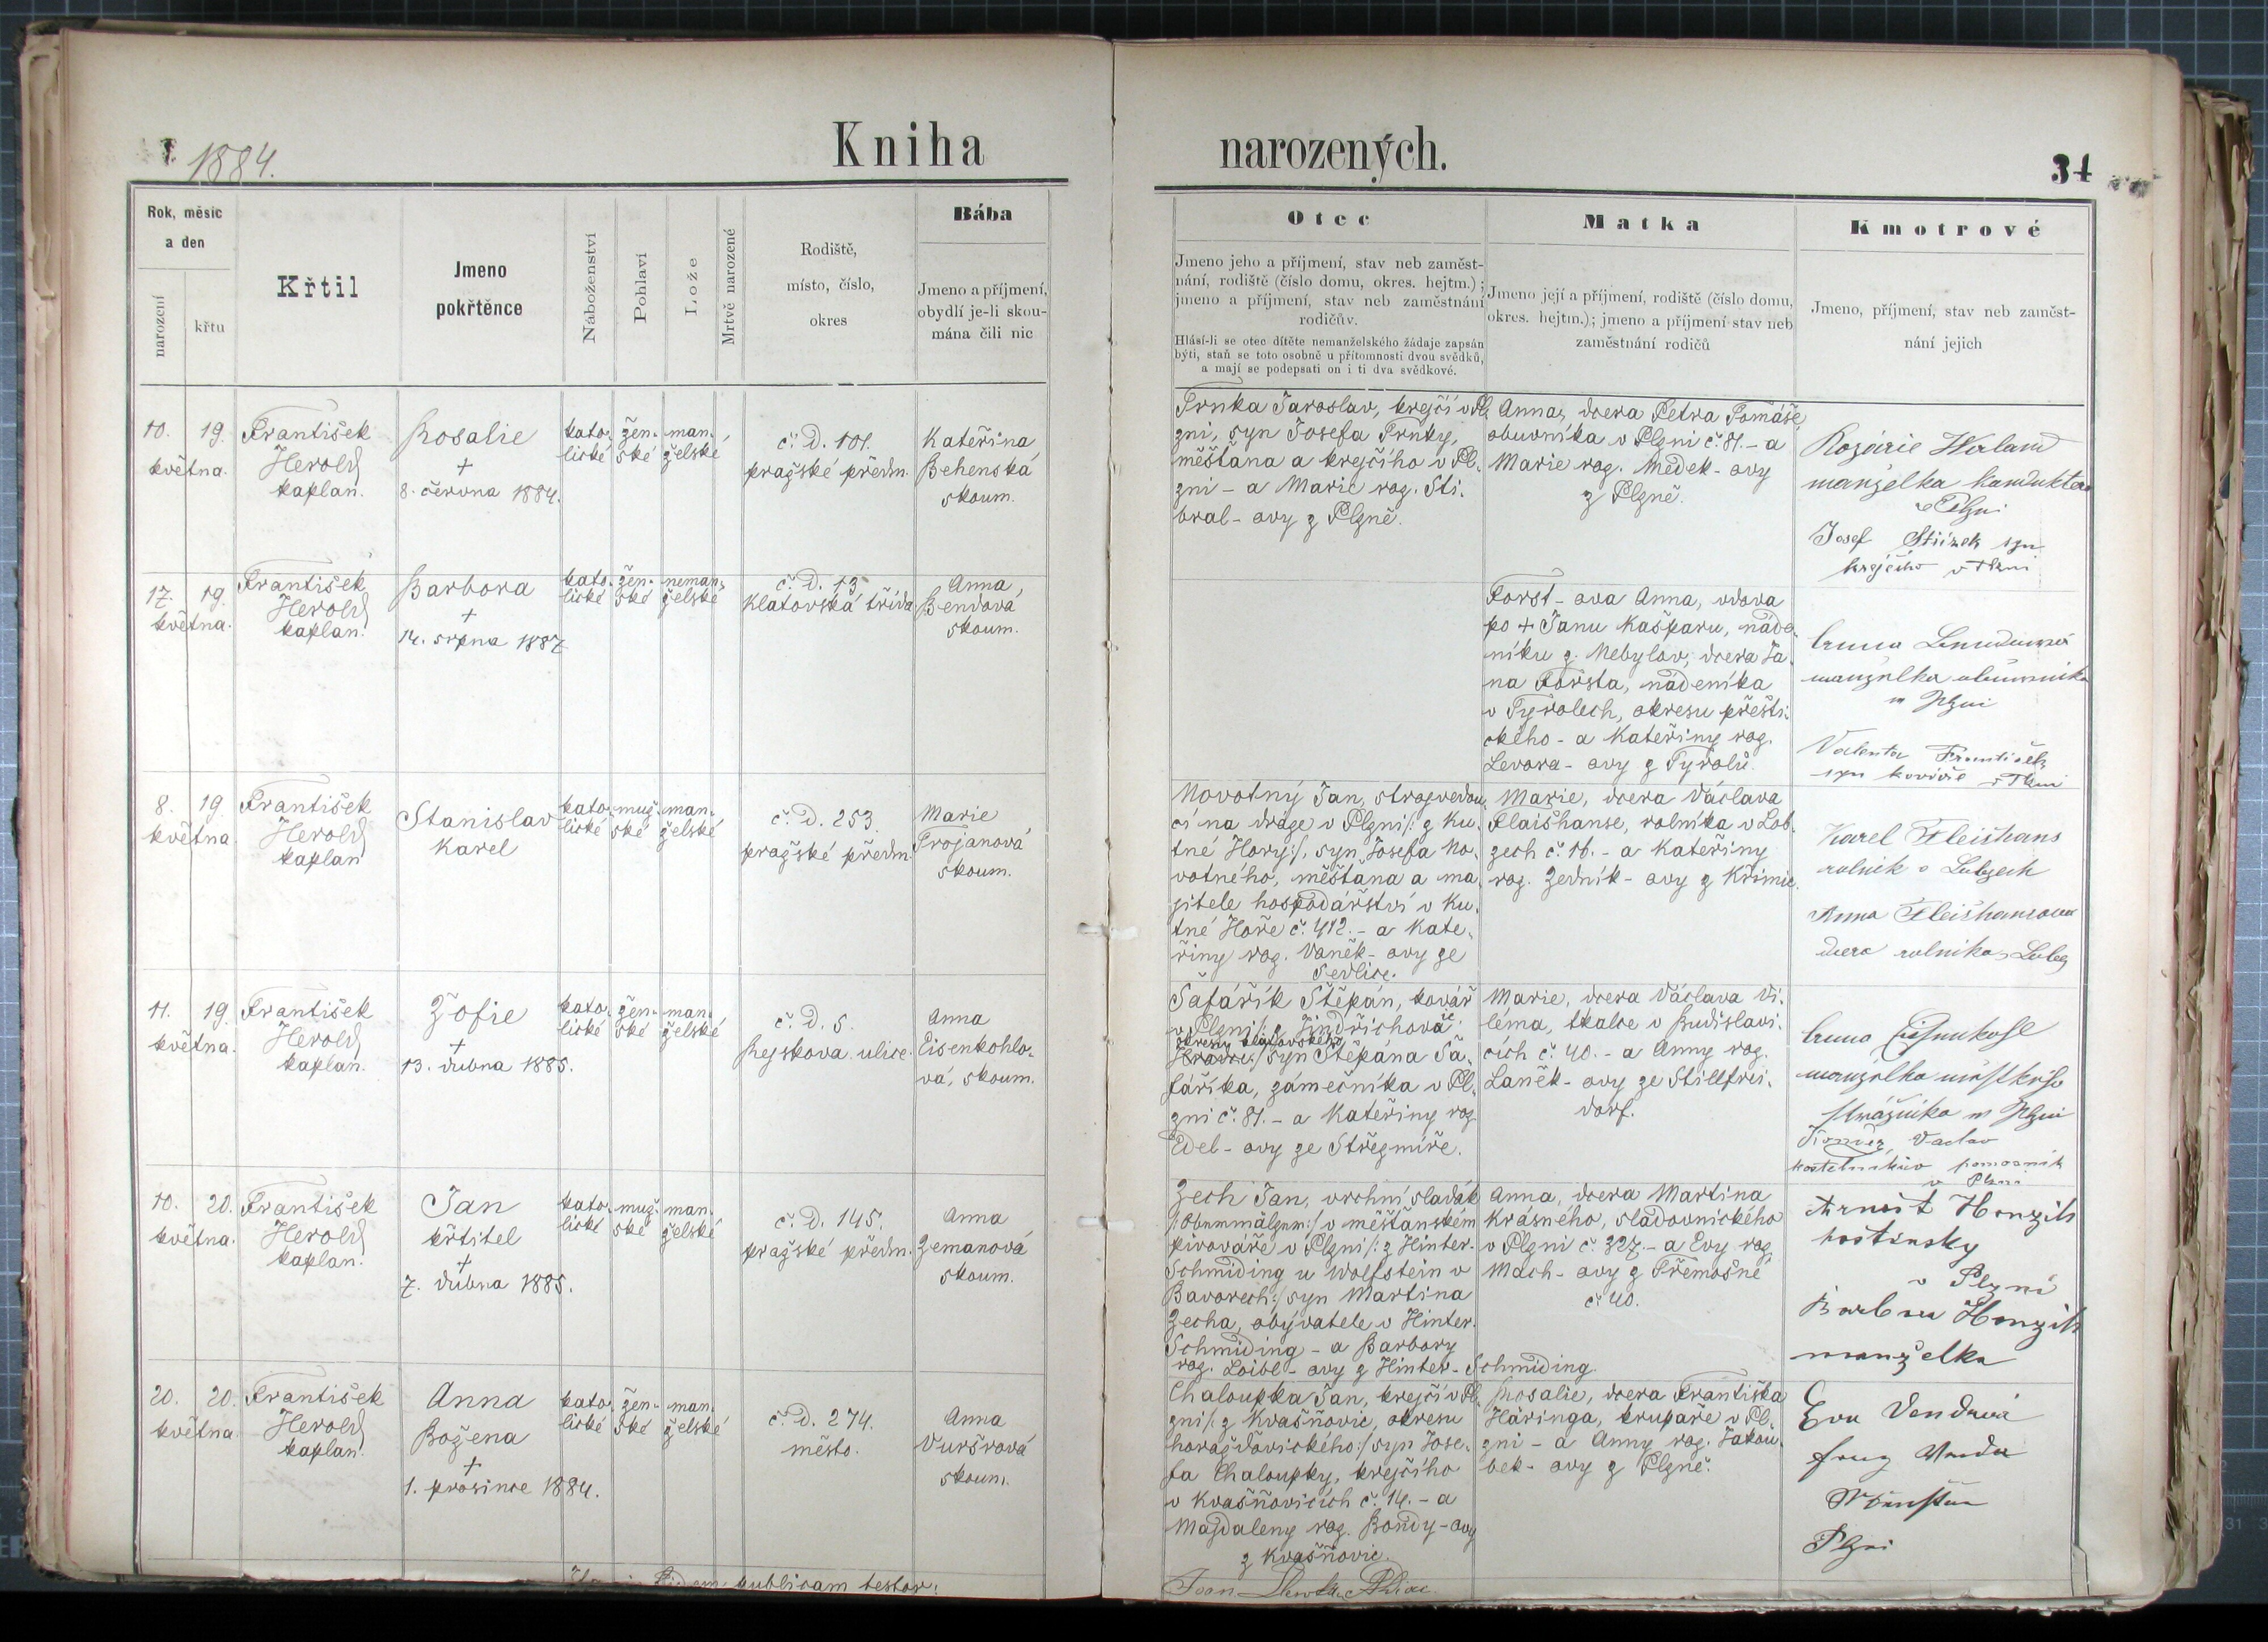 Kniha narozených.
1884.
34
Rok, měsíc
a den
narození
křtu
Křtil
Jmeno
pokřtěnce
Náboženství
Pohlaví
Lože
Mrtvě narozené
Rodiště,
místo, číslo,
okres
Bába
Jmeno a příjmení,
obydlí je-li skou-
mána čili nic
Otec
Jmeno jeho a příjmení, stav neb zaměst-
nání, rodiště (číslo domu, okres. hejtm.);
jmeno a příjmení, stav neb zaměstnání
rodičův.
Hlásí-li se otec dítěte nemanželského žádaje zapsán
býti, staň se toto osobně u přítomnosti dvou svědků,
a mají se podepsati on i ti dva svědkové.
Matka
Jmeno její a příjmení, rodiště (číslo domu,
okres. hejtm.); jmeno a příjmení stav neb
zaměstnání rodičů
Kmotrové
Jmeno, příjmení, stav neb zaměst-
nání jejich
10. 19.
května.
František
Herold
kaplan.
Rosalie
+
8. června 1884.
kato-
lické
žen-
ské
man-
želské
č. D. 101.
pražské předm.
Kateřina
Behenská
skoum.
Trnka Jaroslav, krejčí v Pl-
zni, syn Josefa Trnky,
měšťana a krejčího v Pl-
zni - a Marie roz. Sti-
bral- ovy z Plzně.
Anna, dcera Petra Tomáše,
obuvníka v Plzni č. 81. - a
Marie roz. Medek- ovy
z Plzně.
manželka konduktera
v Plzni
Josef
krejčího v Plzni
17. 19.
května.
František
Herold
kaplan.
Barbora
+
14. srpna 1887
kato-
lické
žen-
ské
neman-
želské
č. D. 13
Klatovská třída
Anna
Bendová
skoum.
Forst- ova Anna, vdova
po + Janu Kašparu, náde-
níku z Nebylov, dcera Ja-
na Forsta, nádeníka
v Tyrolech, okresu přešti-
ckého - a Kateřiny roz.
Levora- ovy z Tyrolů.
manželka obuvníka
v Plzni
Valenta František
syn kováře v Plzni
8. 19.
května
František
Herold
kaplan
Stanislav
Karel
kato-
lické
muž-
ské
man-
želské
č. D. 253.
pražské předm.
Marie
Trojanová
skoum.
Novotný Jan, strojvedou-
cí na dráze v Plzni /: z Ku-
tné Hory :/, syn Josefa No-
votného, měšťana a ma-
jitele hospodářství v Ku-
tné Hoře č. 412. - a Kate-
řiny roz. Vaněk- ovy ze
Sedlice.
Marie, dcera Václava
Flaišhanse, rolníka v Lob-
zech č. 16. - a Kateřiny
roz. Zedník- ovy z Křimic.
Karel Fleišhans
rolník v Lobzech
Anna Fleišhansova
dcera rolníka z Lobez
11. 19.
května.
František
Herold
kaplan.
Žofie
+
13. dubna 1885.
kato-
lické
žen-
ské
man-
želské
č. D. 5.
Rejskova ulice.
Anna
Eisenkohlo-
vá, skoum.
Šafářík Štěpán, kovář
v Plzni /: z Jindřichovic
okresu klatovského
:/ syn Štěpána Ša-
faříka, zámečníka v Pl-
zni č. 81. - a Kateřiny roz.
Edel- ovy ze Střezmíře.
Marie, dcera Václava Vi-
léma, tkalce v Budislavi-
cích č. 40. - a Anny roz.
Laněk- ovy ze Stillfrei-
dorf.
Anna
manželka městského
strážníka v Plzni
Václav
kostelníkův pomocník
v Plzni
10. 20.
května.
František
Herold
kaplan.
Jan
křtitel
+
7. dubna 1885.
kato-
lické
muž-
ské
man-
želské
č. D. 145.
pražské předm.
Anna
Zemanová
skoum.
Zech Jan, vrchní sladák
/: Obermmälzer :/ v měšťanském
pivováře v Plzni /: z Hinter-
Schmiding u Wolfstein v
Bavorech :/ syn Martina
Zecha, obyvatele v Hinter-
Schmiding - a Barbory
roz. Loibl- ovy z Hinter- Schmiding
Anna, dcera Martina
Krásného, sladovnického
v Plzni č. 327. - a Evy roz.
Mach- ovy z Třemošné
č. 40.
Arnošt Honzik
hostinsky
v Plzni
Barbora Honzik
manželka
20. 20.
května
František
Herold
kaplan.
Anna
Božena
+
1. prosince 1884.
kato-
lické
žen-
ské
man-
želské
č. D. 274.
město.
Anna
Vuršrová
skoum.
Chaloupka Jan, krejčí v Pl-
zni /: z Kvašňovic, okresu
horažďovického :/ syn Jose-
fa Chaloupky, krejčího
v Kvašňovicích č. 14. - a
Majdaleny roz. Bondy- ovy
z Kvašňovic.
Rosalie, dcera Františka
Häringa, krupaře v Pl-
zni - a Anny roz. Jakou-
bek- ovy z Plzně.
Eva
Plzni
fidem publicam testor:
Joan